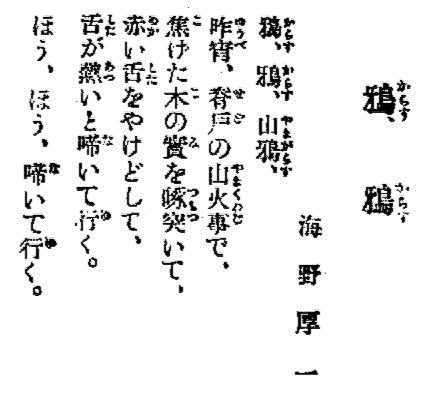 鴉、鴉
海野厚一
鴉、鴉、山鴉、
昨宵、脊戸の山火事で、
焦げた木の實を啄突いて、
赤い舌をやけどして、
舌が熱いと啼いて行く。
ほう、ほう、啼いて行く。